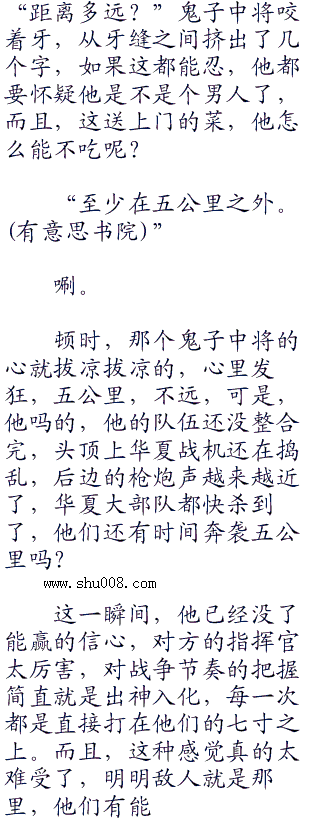 “距离多远？”鬼子中将咬
着牙，从牙缝之间挤出了几
个字，如果这都能忍，他都
要怀疑他是不是个男人了，
而且，这送上门的菜，他怎
么能不吃呢？
“至少在五公里之外。
(有意思书院)”
唰。
顿时，那个鬼子中将的
心就拔凉拔凉的，心里发
狂，五公里，不远，可是，
他吗的，他的队伍还没整合
完，头顶上华夏战机还在捣
乱，后边的枪炮声越来越近
了，华夏大部队都快杀到
了，他们还有时间奔袭五公
里吗？
www.shu008.com
这一瞬间，他已经没了
能赢的信心，对方的指挥官
太厉害，对战争节奏的把握
简直就是出神入化，每一次
都是直接打在他们的七寸之
上。而且，这种感觉真的太
难受了，明明敌人就是那
里，他们有能